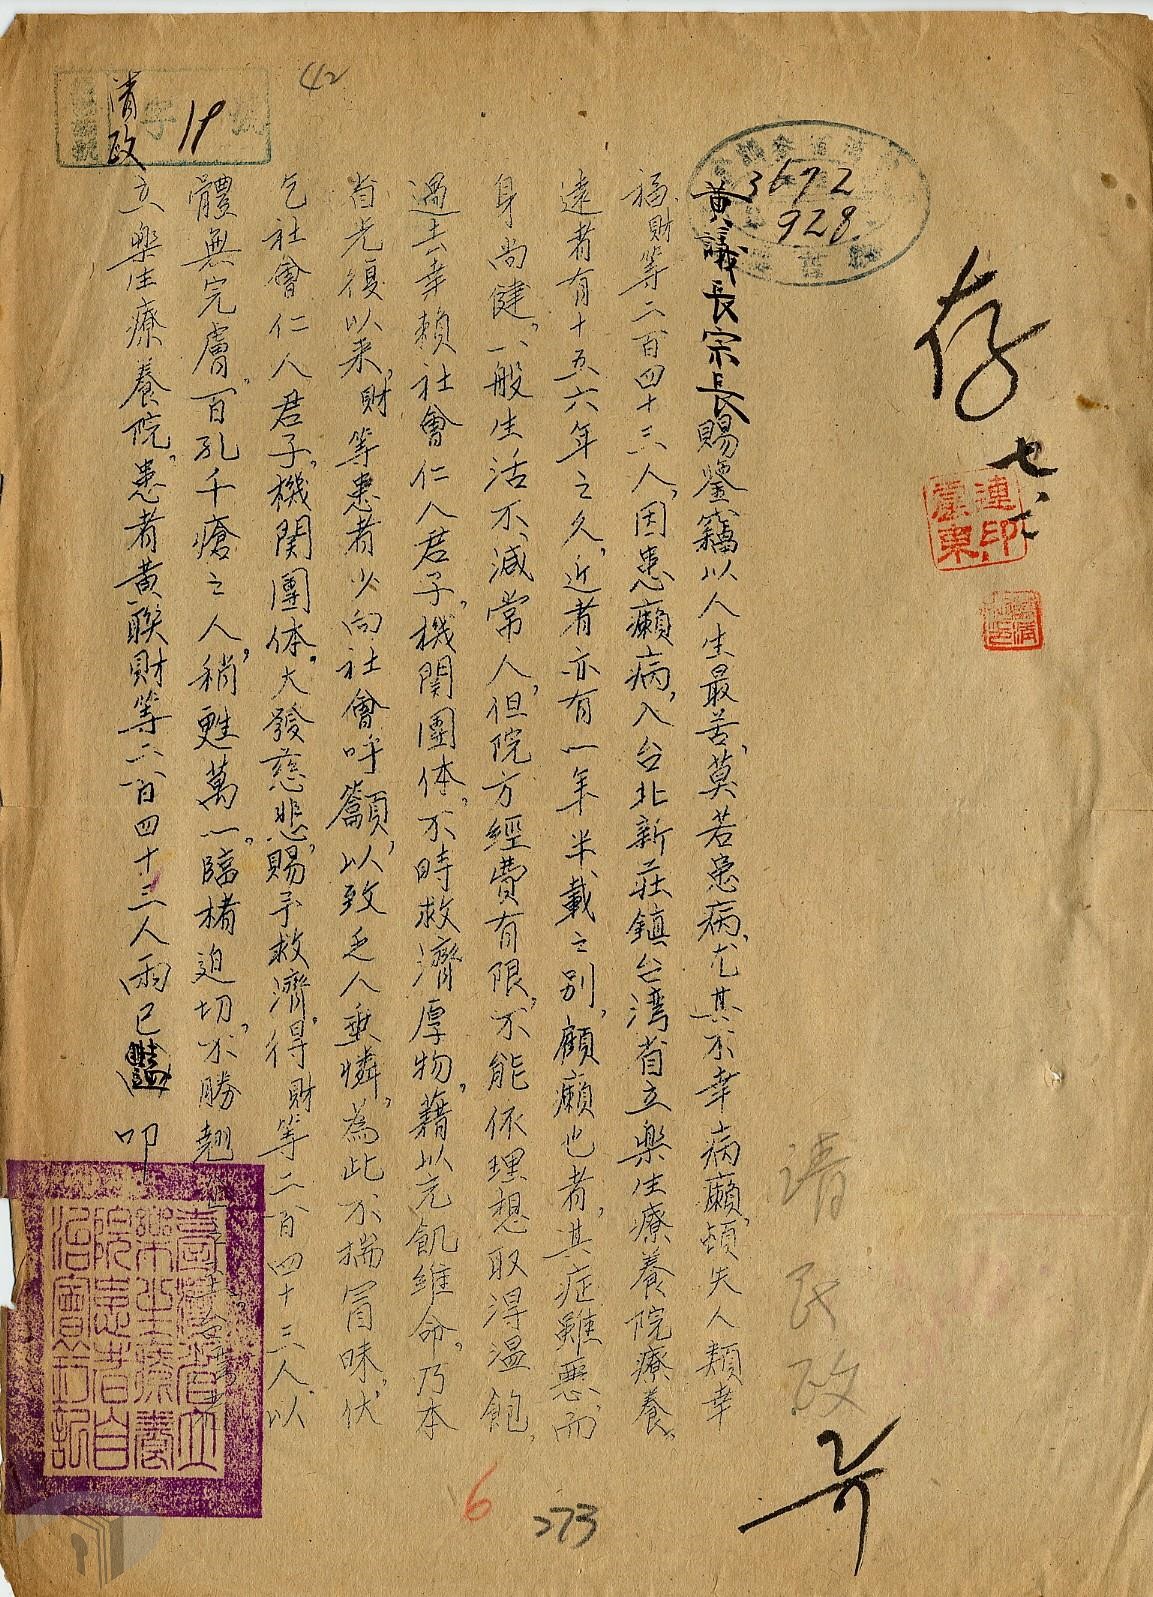 42
清政
字 19 號
3672
928
存
七、六
連
印
東
請民政
黃議長宗長賜鑒竊以人生最苦,莫若患病,尤其不幸病癩,頓失人類幸
福,財等二百四十三人,因患癩病,入台北新莊鎮台湾省立樂生療養院療養。
遠者有十五六年之久,近者亦有一年半載之别,顧癩也者,其症雖惡,而
身尚健,一般生活不減常人,但院方經費有限,不能依理想取得溫飽,
過去幸賴社會仁人君子,機関團体,不時救濟厚物,藉以充飢維命,乃本
省光復以来,財等患者少向社會呼籲,以致乏人垂憐,為此不揣冒昧,伏
乞社會仁人君子,機関團体,大發慈悲,賜予救濟,得財等二百四十三人,以
體無完膚,百孔千瘡之人,稍甦萬一,臨楮迫切,不勝翹
立樂生療養院,患者黃聯財等二百四十三人(雨)已 叩
臺灣省立
樂生療養
院患者自
治會鈐記
6
273